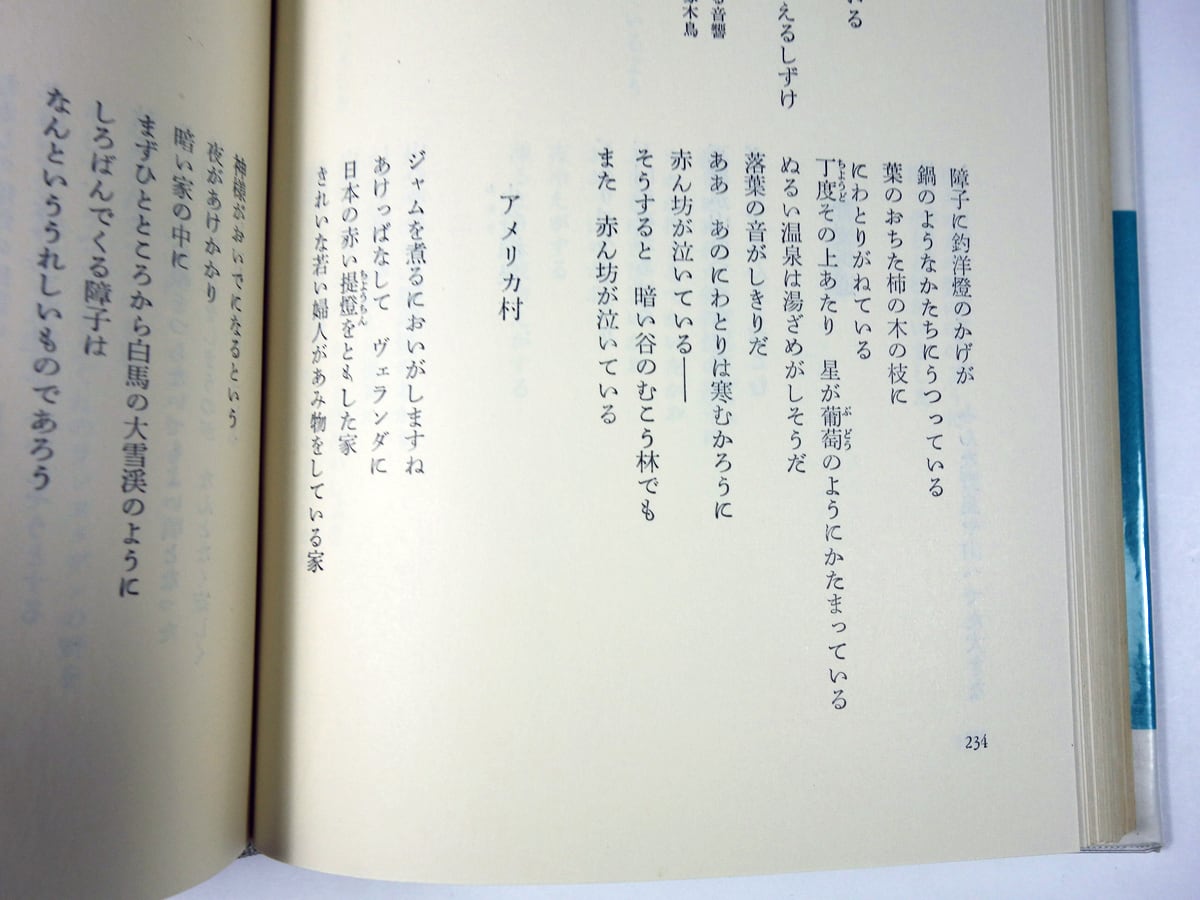 おる
えるしずけ
る音響
木鳥
障子に釣洋燈のかげが
鍋のようなかたちにうつっている
葉のおちた柿の木の枝に
にわとりがねている
丁度その上あたり　星が葡萄のようにかたまっている
ちょうど
ぶどう
ぬるい温泉は湯ざめがしそうだ
落葉の音がしきりだ
ああ　あのにわとりは寒むかろうに
赤ん坊が泣いている――
そうすると　暗い谷のむこう林でも
また　赤ん坊が泣いている
アメリカ村
ジャムを煮るにおいがしますね
あけっぱなして　ヴェランダに
日本の赤い提燈をともした家
ちょうちん
きれいな若い婦人があみ物をしている家
234
神様がおいでになるという
夜があけかかり
暗い家の中に
まずひとところから白馬の大雪渓のように
しろばんでくる障子は
なんといううれしいものであろう